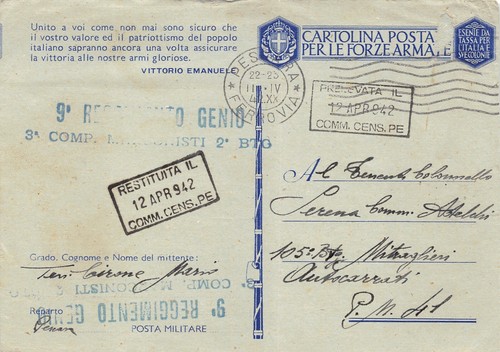 Unito a voi come non mai sono sicuro che
il vostro valore ed il patriottismo del popolo
italiano sapranno ancora una volta assicurare
la vittoria alle nostre armi gloriose.
VITTORIO EMANUELE
CARTOLINA POSTA
PER LE FORZE ARMATE
ESENTE DA
TASSA PER
L'ITALIA E
SVE COLONIE
PESCARA
22-23
11-IV
42 XX
FERROVIA
PRELEVATA IL
12 APR 942
COMM. CENS. PE
9° REGGIMENTO GENIO
3ª COMP. M CONISTI 2° BTG
RESTITUITA IL
12 APR 942
COMM. CENS. PE
Al Tenente Colonnello
Serena Comm.
105° Btg Mitraglieri
Autocarrati
P.M. 41
Grado, Cognome e Nome del mittente:
Ten. Cirone Mario
COMP. M CONISTI
9° REGGIMENTO GEN
Reparto
POSTA MILITARE